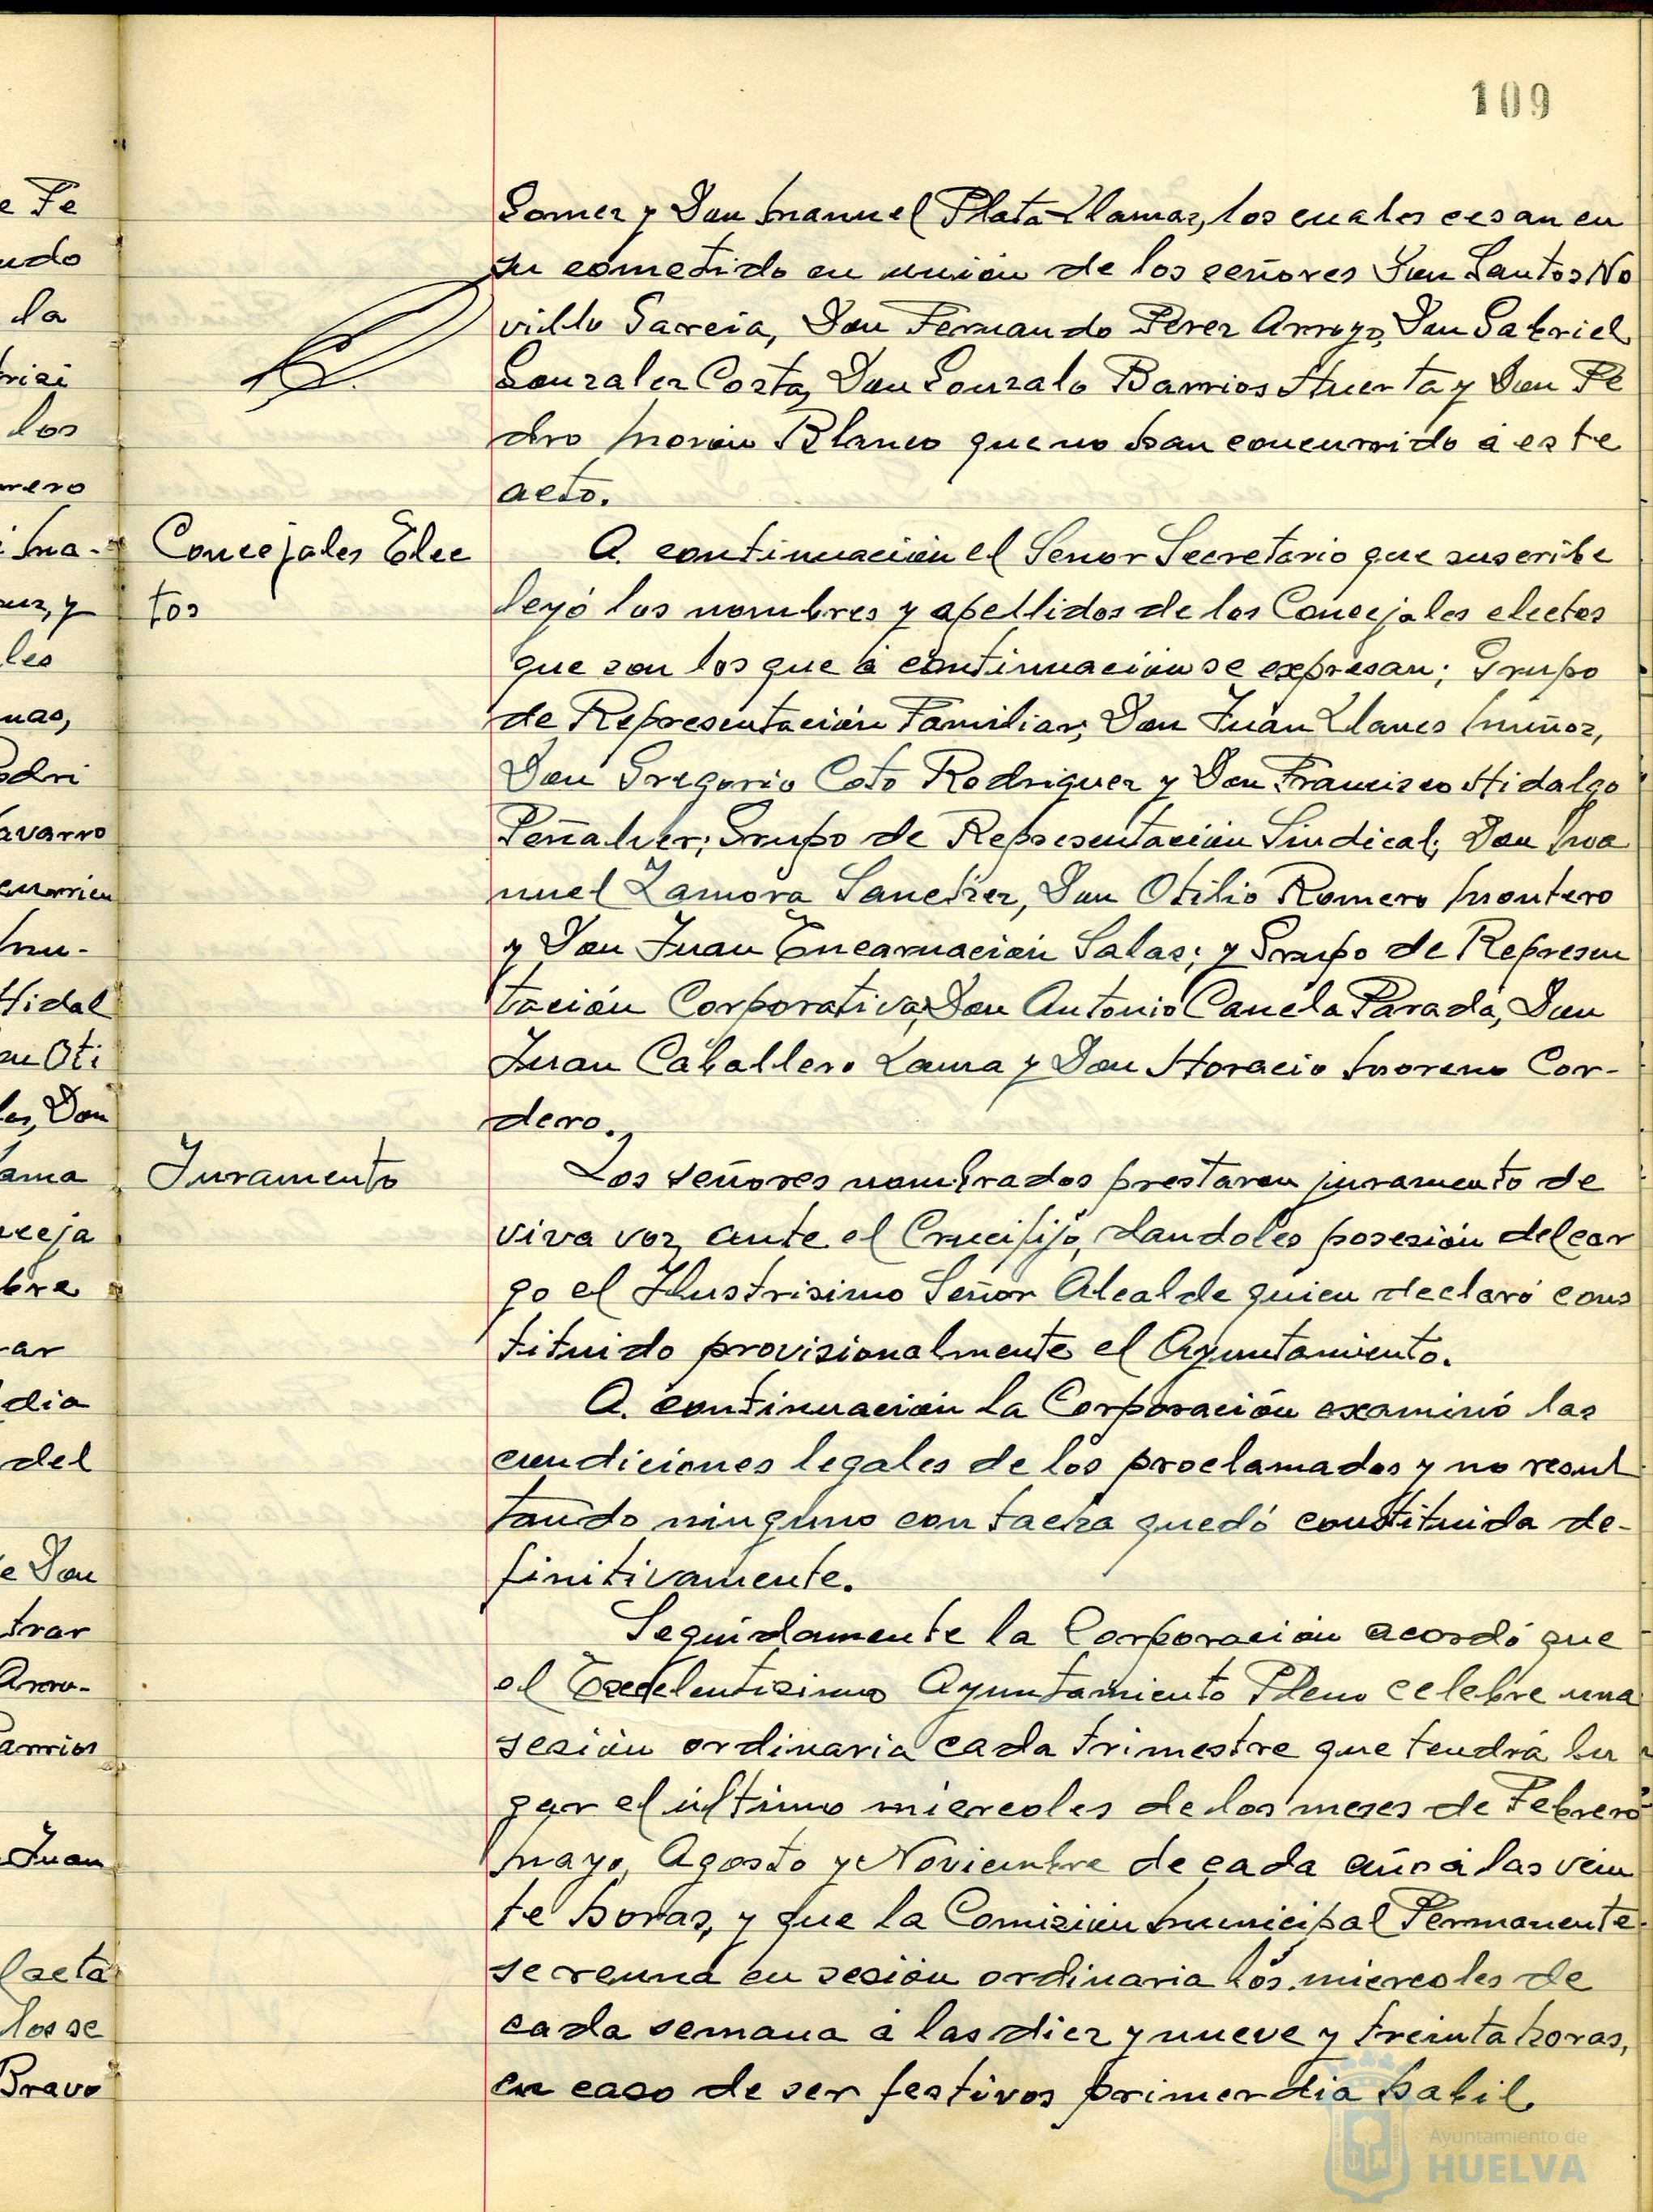 109
Gomez y Don Manuel Plata Llamas, los cuales cesan en
su cometido en unión de los señores Don Santos No
villo Garcia, Don Fernando Perez Arroyo, Don Gabriel
Gonzalez Costa, Don Gonzalo Barrios Huerta y Don Pe
dro Morón Blanco que no han concurrido á este
acto.
Concejales Elec
tos
A continuación el Señor Secretario que suscribe
leyó los nombres y apellidos de los Concejales electos
que son los que á continuación se expresan; Grupo
de Representación Familiar, Don Juan Llanes Muñoz,
Don Gregorio Coto Rodriguez y Don Francisco Hidalgo
Peñalver; Grupo de Representación Sindical; Don Ma
nuel Zamora Sanchez, Don Otilio Romero Montero
y Don Juan Encarnación Salas; y Grupo de Represen
tación Corporativa, Don Antonio Canela Parada, Don
Juan Caballero Lama y Don Horacio Moreno Cor-
dero.
Juramento
Los señores nombrados prestaron juramento de
viva voz, ante el Crucifijo, dandoles posesión del car
go el Ilustrisimo Señor Alcalde quien declaró cons
tituido provisionalmente el Ayuntamiento.
A continuación la Corporación examinó las
condiciones legales de los proclamados y no resul
tando ninguno con tacha quedó constituida de-
finitivamente.
Seguidamente la Corporación acordó que
el Excelentisimo Ayuntamiento Pleno celebre una
sesión ordinaria cada trimestre que tendrá lu
gar el último miercoles de los meses de Febrero
Mayo, Agosto y Noviembre de cada año á las vein
te horas, y que la Comisión Municipal Permanente
se reuna en sesión ordinaria los miercoles de
cada semana á las diez y nueve y treinta horas,
en caso de ser festivos primer dia habil.
e Fe
ndo
la
los
mero
les
nas,
odri
avarro
Hidal
n Oti
les, Don
ama
nceja
bre
ar
dia
del
e Don
trar
Arro-
Barrios
Juan
los se
Bravo
Ayuntamiento de
HUELVA